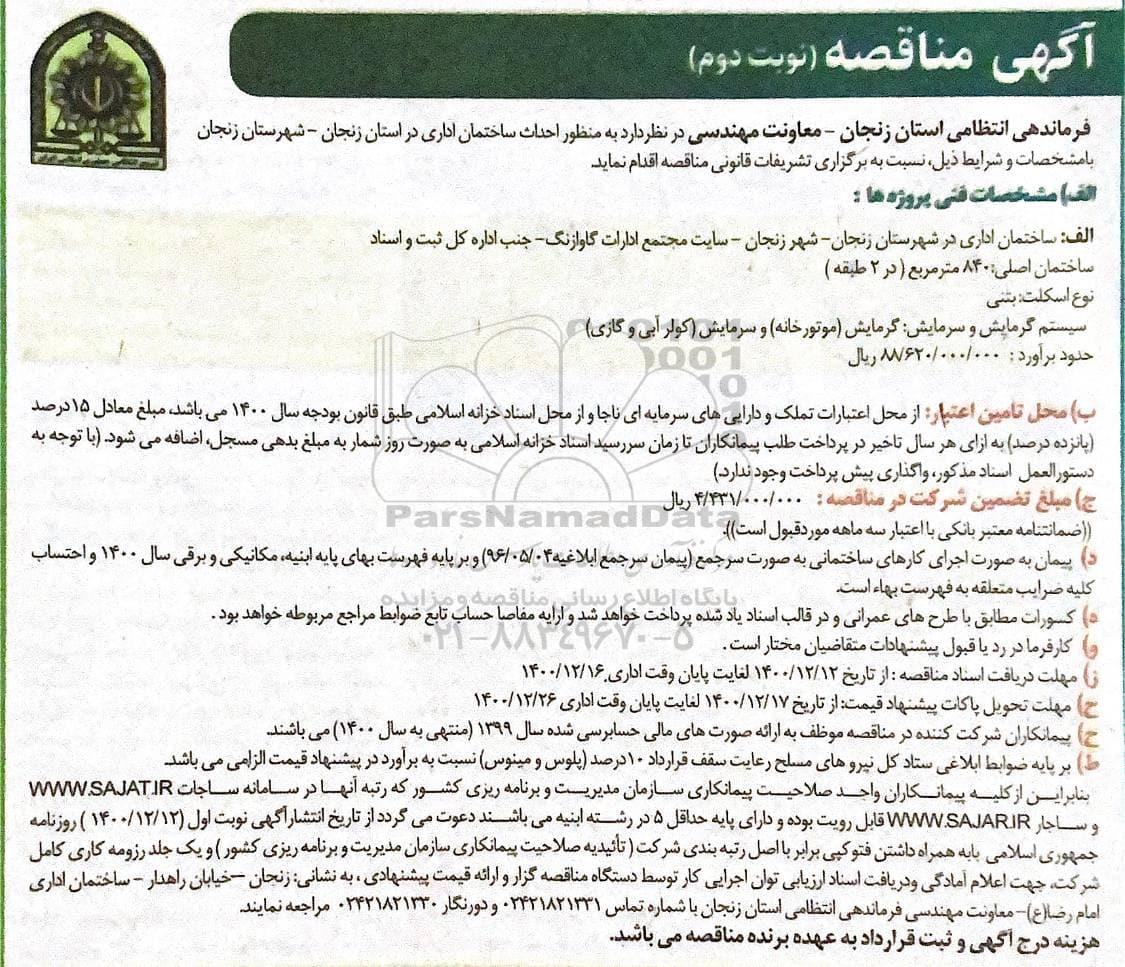 آگهی مناقصه (نوبت دوم)
فرماندهی انتظامی استان زنجان – معاونت مهندسی در نظردارد به منظور احداث ساختمان اداری در استان زنجان – شهرستان زنجان
بامشخصات و شرایط ذیل، نسبت به برگزاری تشریفات قانونی مناقصه اقدام نماید.
الف) مشخصات فنی پروژه ها :
الف: ساختمان اداری در شهرستان زنجان– شهر زنجان – سایت مجتمع ادارات گاوازنگ– جنب اداره کل ثبت و اسناد
ساختمان اصلی: ۸۴۰ مترمربع ( در ۲ طبقه )
نوع اسکلت: بتنی
سیستم گرمایش و سرمایش: گرمایش (موتورخانه) و سرمایش (کولر آبی و گازی)
حدود برآورد : ۸۸/۶۲۰/۰۰۰/۰۰۰ ریال
ب) محل تامین اعتبار: از محل اعتبارات تملک و دارایی های سرمایه ای ناجا و از محل اسناد خزانه اسلامی طبق قانون بودجه سال ۱۴۰۰ می باشد، مبلغ معادل ۱۵درصد
(پانزده درصد) به ازای هر سال تاخیر در پرداخت طلب پیمانکاران تا زمان سررسید اسناد خزانه اسلامی به صورت روز شمار به مبلغ بدهی مسجل، اضافه می شود. (با توجه به
دستورالعمل اسناد مذکور، واگذاری پیش پرداخت وجود ندارد.)
ج) مبلغ تضمین شرکت در مناقصه : ۴/۴۳۱/۰۰۰/۰۰۰ ریال
((ضمانتنامه معتبر بانکی با اعتبار سه ماهه موردقبول است)).
ParsNamadData
د) پیمان به صورت اجرای کارهای ساختمانی به صورت سرجمع (پیمان سرجمع ابلاغیه۹۶/۰۵/۰۴) و بر پایه فهرست بهای پایه ابنیه، مکانیکی و برقی سال ۱۴۰۰ و احتساب
کلیه ضرایب متعلقه به فهرست بهاء است.
پایگاه اطلاع رسانی مناقصه و مزایده
ه) کسورات مطابق با طرح های عمرانی و در قالب اسناد یاد شده پرداخت خواهد شد و ارایه مفاصا حساب تابع ضوابط مراجع مربوطه خواهد بود .
۰۲۱-۸۸۳۴۹۶۷۰-۵
و) کارفرما در رد یا قبول پیشنهادات متقاضیان مختار است .
ز) مهلت دریافت اسناد مناقصه : از تاریخ ۱۴۰۰/۱۲/۱۲ لغایت پایان وقت اداری ۱۴۰۰/۱۲/۱۶
ح) مهلت تحویل پاکات پیشنهاد قیمت: از تاریخ ۱۴۰۰/۱۲/۱۷ لغایت پایان وقت اداری ۱۴۰۰/۱۲/۲۶
ح) پیمانکاران شرکت کننده در مناقصه موظف به ارائه صورت های مالی حسابرسی شده سال ۱۳۹۹ (منتهی به سال ۱۴۰۰) می باشند.
ط) بر پایه ضوابط ابلاغی ستاد کل نیرو های مسلح رعایت سقف قرارداد ۱۰درصد (پلوس و مینوس) نسبت به برآورد در پیشنهاد قیمت الزامی می باشد.
بنابراین از کلیه پیمانکاران واجد صلاحیت پیمانکاری سازمان مدیریت و برنامه ریزی کشور که رتبه آنها در سامانه ساجات WWW.SAJAT.IR
و ساجار WWW.SAJAR.IR قابل رویت بوده و دارای پایه حداقل ۵ در رشته ابنیه می باشند دعوت می گردد از تاریخ انتشارآگهی نوبت اول (۱۴۰۰/۱۲/۱۲ ) روزنامه
جمهوری اسلامی بابه همراه داشتن فتوکپی برابر با اصل رتبه بندی شرکت ( تأئیدیه صلاحیت پیمانکاری سازمان مدیریت و برنامه ریزی کشور ) و یک جلد رزومه کاری کامل
شرکت، جهت اعلام آمادگی ودریافت اسناد ارزیابی توان اجرایی کار توسط دستگاه مناقصه گزار و ارائه قیمت پیشنهادی ، به نشانی: زنجان –خیابان راهدار – ساختمان اداری
امام رضا(ع)– معاونت مهندسی فرماندهی انتظامی استان زنجان با شماره تماس ۰۲۴۲۱۸۲۱۳۳۱ و دورنگار ۰۲۴۲۱۸۲۱۳۳۰ مراجعه نمایند.
هزینه درج آگهی و ثبت قرارداد به عهده برنده مناقصه می باشد.